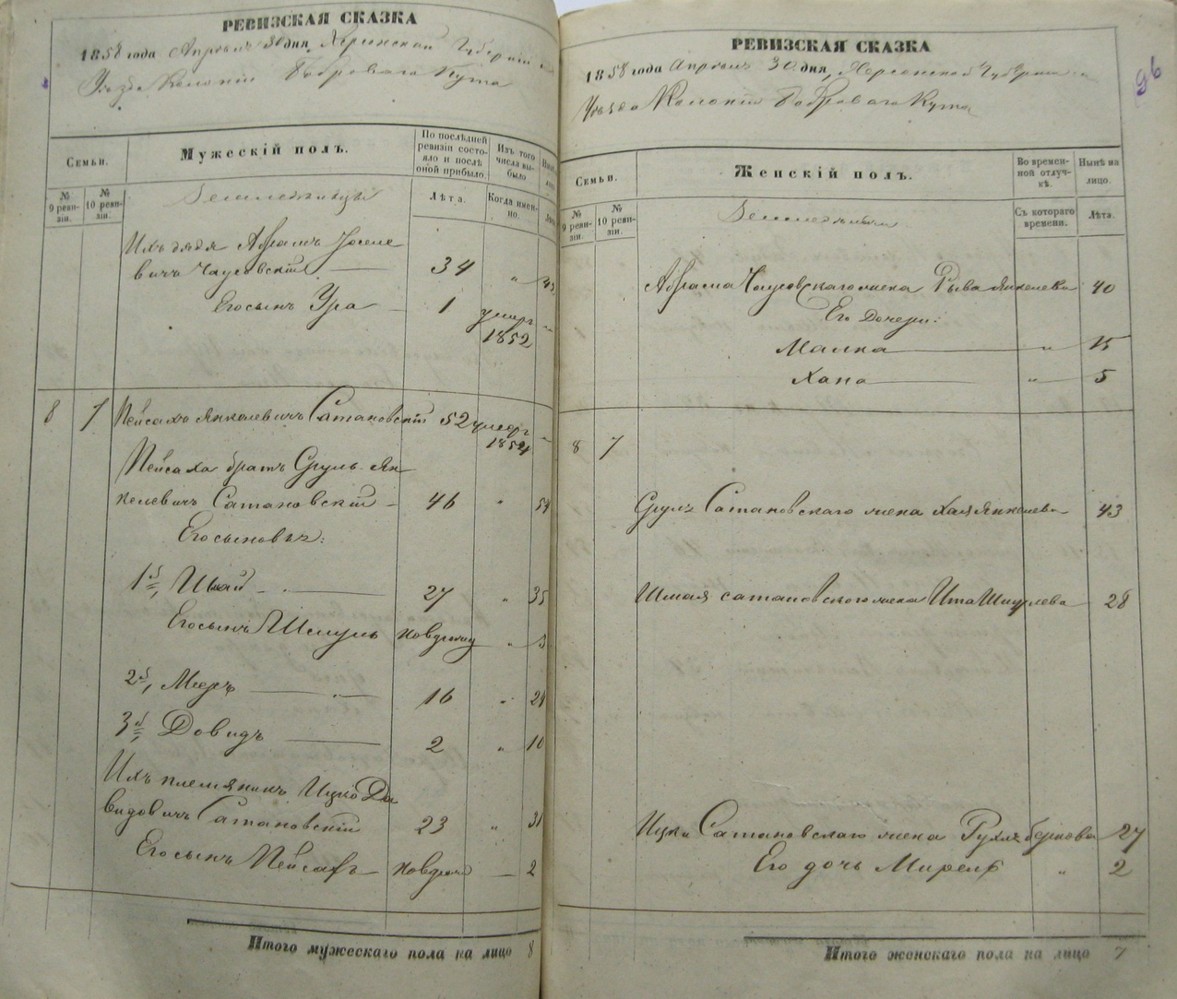 РЕВИЗСКАЯ СКАЗКА
1858 года Апреля 30 дня, Херсонской Губерніи и
Уезда Колоніи Боброваго Кута
Семьи.
Мужескій полъ.
По послѣдней ревизіи состояло и послѣ оной прибыло.
Изъ того числа выбыло
№ 9 ревизіи.
№ 10 ревизіи.
Земледельцы
Лѣта.
Когда именно.
Ихъ дядя Абрамъ Иоселе
вичъ Чаусовскій — 34 „ 42
Егосынъ Ура — 1 умеръ 1852 „
8 7 Пейсахъ Янкелевичъ Сатановскій 52 умеръ 1854 „
Пейсаха братъ Сруль Ян
келевичъ Сатановскій — 46 „ 54
Егосыновья:
1й, Шмай — 27 „ 35
Егосынъ Шмуль новорожд „ 3
2й, Меръ — 16 „ 24
3й, Довидъ — 2 „ 10
Ихъ племянникъ Ицко Да
видовичъ Сатановскій 23 „ 31
Егосынъ Пейсахъ новорожд — 2
Итого мужескаго пола на лицо 8
РЕВИЗСКАЯ СКАЗКА
1858 года Апреля 30 дня, Херсонской Губерніи и
Уезда Колоніи Боброваго Кута
96
Семьи.
Женскій полъ.
Во временной отлучкѣ.
Нынѣ на лицо.
№ 9 ревизіи.
№ 10 ревизіи.
Земледельцы
Съ котораго времени.
Лѣта.
Абрама Чаусовскаго жена Рыва Янкелева 40
Его дочери:
Малка — „ 15
Хана — „ 5
8 7
Сруля Сатановскаго жена Хая Янкелева 43
Шмая Сатановскаго жена Ита Шмулева 28
Ицки Сатановскаго жена Рухля Беркова 27
Его дочь Мирель „ 2
Итого женскаго пола на лицо 7